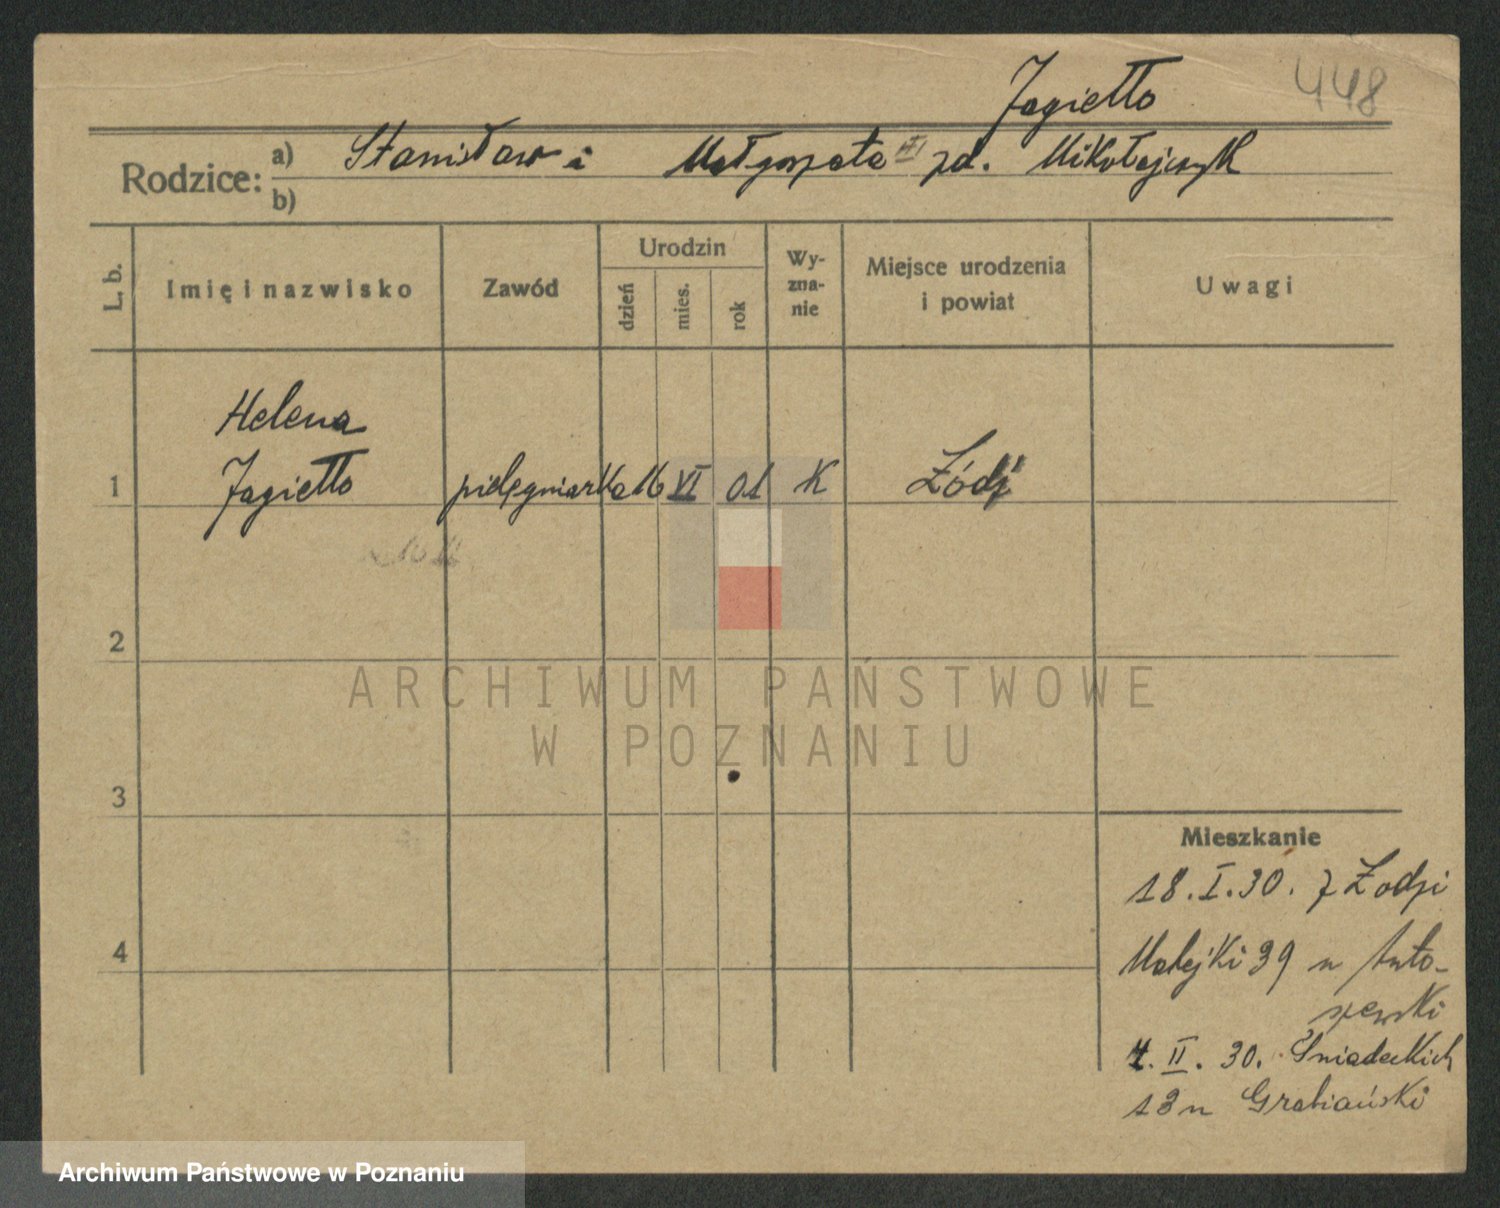 448
Jagiełło
Rodzice: a) Stanisław i Małgorzata zd. Mikołajczyk
b)
L. b. Imię i nazwisko Zawód Urodzin dzień mies. rok Wy-zna-nie Miejsce urodzenia i powiat Uwagi
Helena
1 Jagiełło pielęgniarka 16 VI 01 K Łódź
2
ARCHIWUM PAŃSTWOWE
W POZNANIU
3
Mieszkanie
18.I.30. z Łodzi
4 Matejki 39 u Anto-
szewski
4.II.30. Śniadeckich
13 u Grabiański
Archiwum Państwowe w Poznaniu